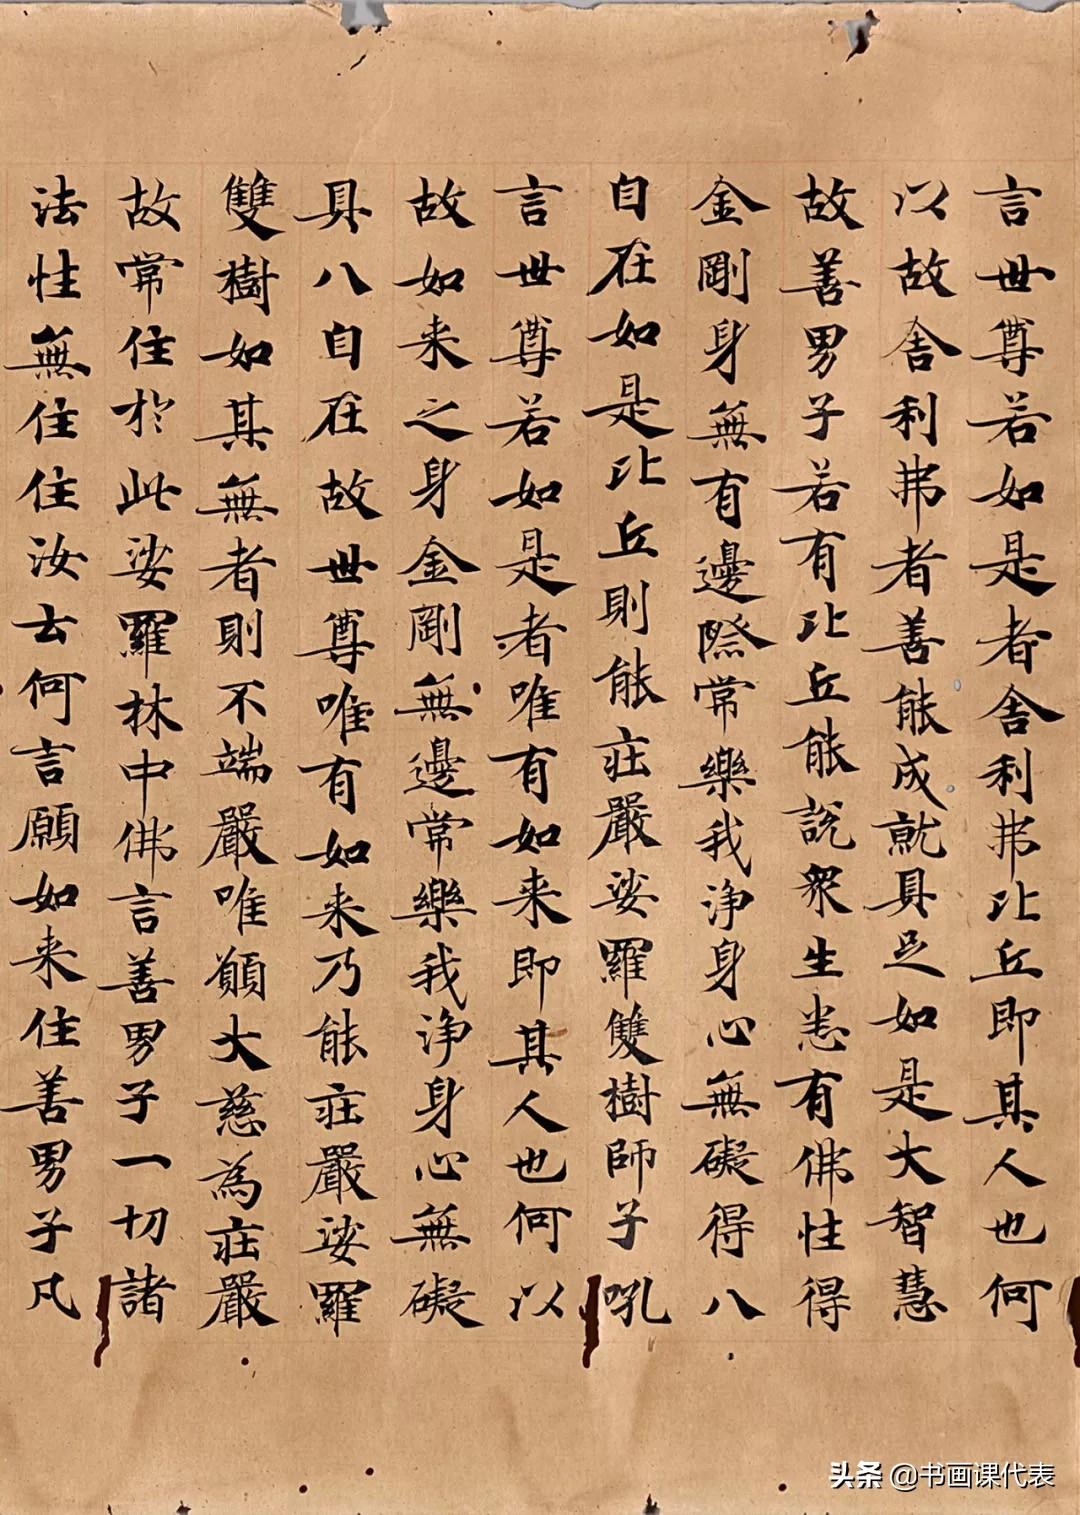 言世尊若如是者舍利弗比丘即其人也何
以故舍利弗者善能成就具足如是大智慧
故善男子若有比丘能説衆生悉有佛性得
金剛身無有邊際常樂我浄身心無礙得八
自在如是比丘則能莊嚴娑羅雙樹師子吼
言世尊若如是者唯有如来即其人也何以
故如来之身金剛無邊常樂我浄身心無礙
具八自在故世尊唯有如来乃能莊嚴娑羅
雙樹如其無者則不端嚴唯願大慈為莊嚴
故常住於此娑羅林中佛言善男子一切諸
法性無住住汝云何言願如来住善男子凡
头条 @书画课代表